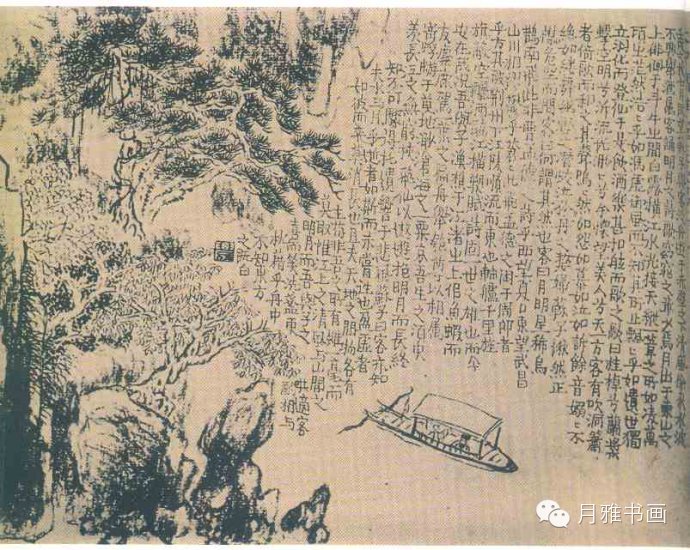 不興舉酒屬客誦明月之詩歌窈窕之章少焉月出于東山之
上徘徊于斗牛之間白露橫江水光接天縱一葦之所如凌萬
頃之茫然浩浩乎如馮虛御風而不知其所止飄飄乎如遺世獨
立羽化而登仙于是飲酒樂甚扣舷而歌之歌曰桂棹兮蘭槳
擊空明兮泝流光渺渺兮余懷望美人兮天一方客有吹洞簫
者倚歌而和之其聲嗚嗚然如怨如慕如泣如訴餘音嫋嫋不
絕如縷舞幽壑之潛蛟泣孤舟之嫠婦蘇子愀然正
襟危坐而問客曰何謂其然也客曰月明星稀烏
鵲南飛此非曹孟德之詩乎西望夏口東望武昌
山川相繆鬱乎蒼蒼此非孟德之困于周郎者
乎方其破荊州下江陵順流而東也舳艫千里旌
旗蔽空釃酒臨江橫槊賦詩固一世之雄也而今
安在哉況吾與子漁樵于江渚之上侶魚蝦而
友麋鹿駕一葉之扁舟舉匏樽以相屬
寄蜉蝣于天地渺滄海之一粟哀吾生之須臾
羨長江之無窮挾飛仙以遨遊抱明月而長終
知不可乎驟得托遺響于悲風蘇子曰客亦知
夫水與月乎逝者如斯而未嘗往也盈虛者
如彼而卒莫消長也
且夫天地之間物各有
主苟非吾之所有雖一毫而
莫取惟江上之清風與山間之
明月而吾與子之所共適客
喜而笑洗盞更酌
相與
枕藉乎舟中
不知東方
之既白
月雅书画